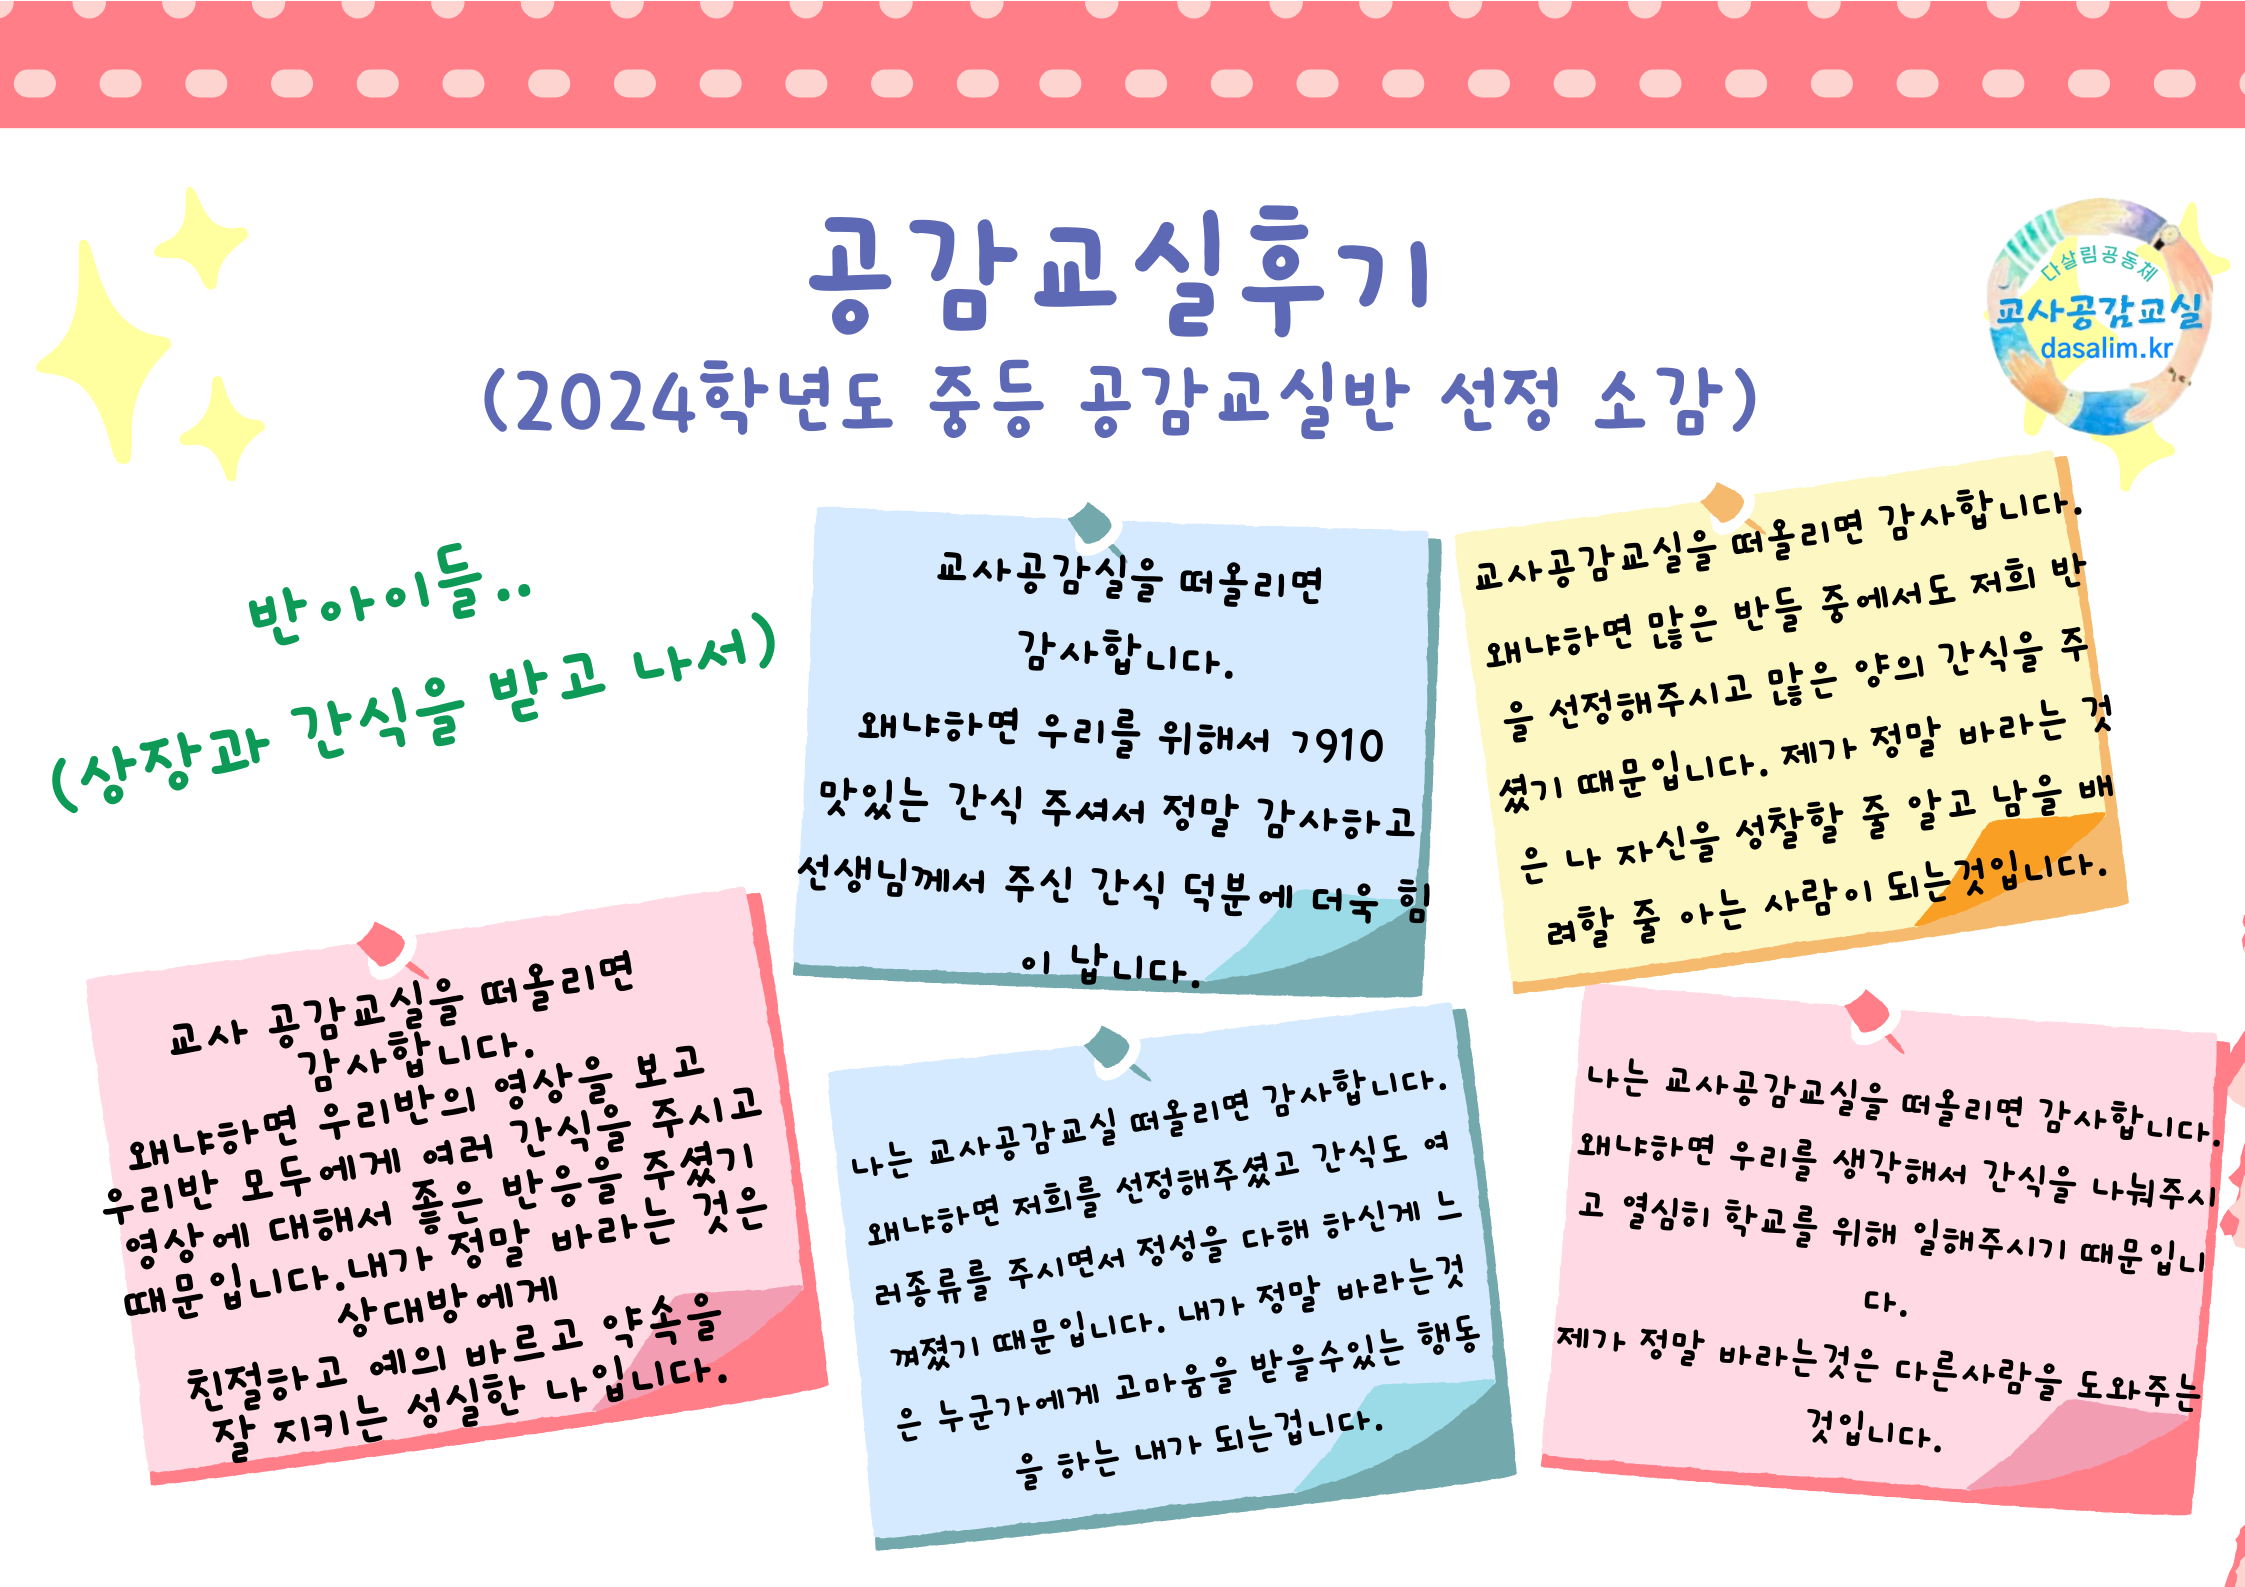 공감교실후기
(2024학년도 중등 공감교실반 선정 소감)
다살림공동체
교사공감교실
dasalim.kr
반아이들..
(상장과 간식을 받고 나서)
교사공감실을 떠올리면
감사합니다.
왜냐하면 우리를 위해서 ㄱ910
맛있는 간식 주셔서 정말 감사하고
선생님께서 주신 간식 덕분에 더욱 힘
이 납니다.
교사공감교실을 떠올리면 감사합니다.
왜냐하면 많은 반들 중에서도 저희 반
을 선정해주시고 많은 양의 간식을 주
셨기 때문입니다. 제가 정말 바라는 것
은 나 자신을 성찰할 줄 알고 남을 배
려할 줄 아는 사람이 되는것입니다.
교사 공감교실을 떠올리면
감사합니다.
왜냐하면 우리반의 영상을 보고
우리반 모두에게 여러 간식을 주시고
영상에 대해서 좋은 반응을 주셨기
때문입니다.내가 정말 바라는 것은
상대방에게
친절하고 예의 바르고 약속을
잘 지키는 성실한 나입니다.
나는 교사공감교실 떠올리면 감사합니다.
왜냐하면 저희를 선정해주셨고 간식도 여
러종류를 주시면서 정성을 다해 하신게 느
껴졌기 때문입니다. 내가 정말 바라는것
은 누군가에게 고마움을 받을수있는 행동
을 하는 내가 되는겁니다.
나는 교사공감교실을 떠올리면 감사합니다.
왜냐하면 우리를 생각해서 간식을 나눠주시
고 열심히 학교를 위해 일해주시기 때문입니
다.
제가 정말 바라는것은 다른사람을 도와주는
것입니다.